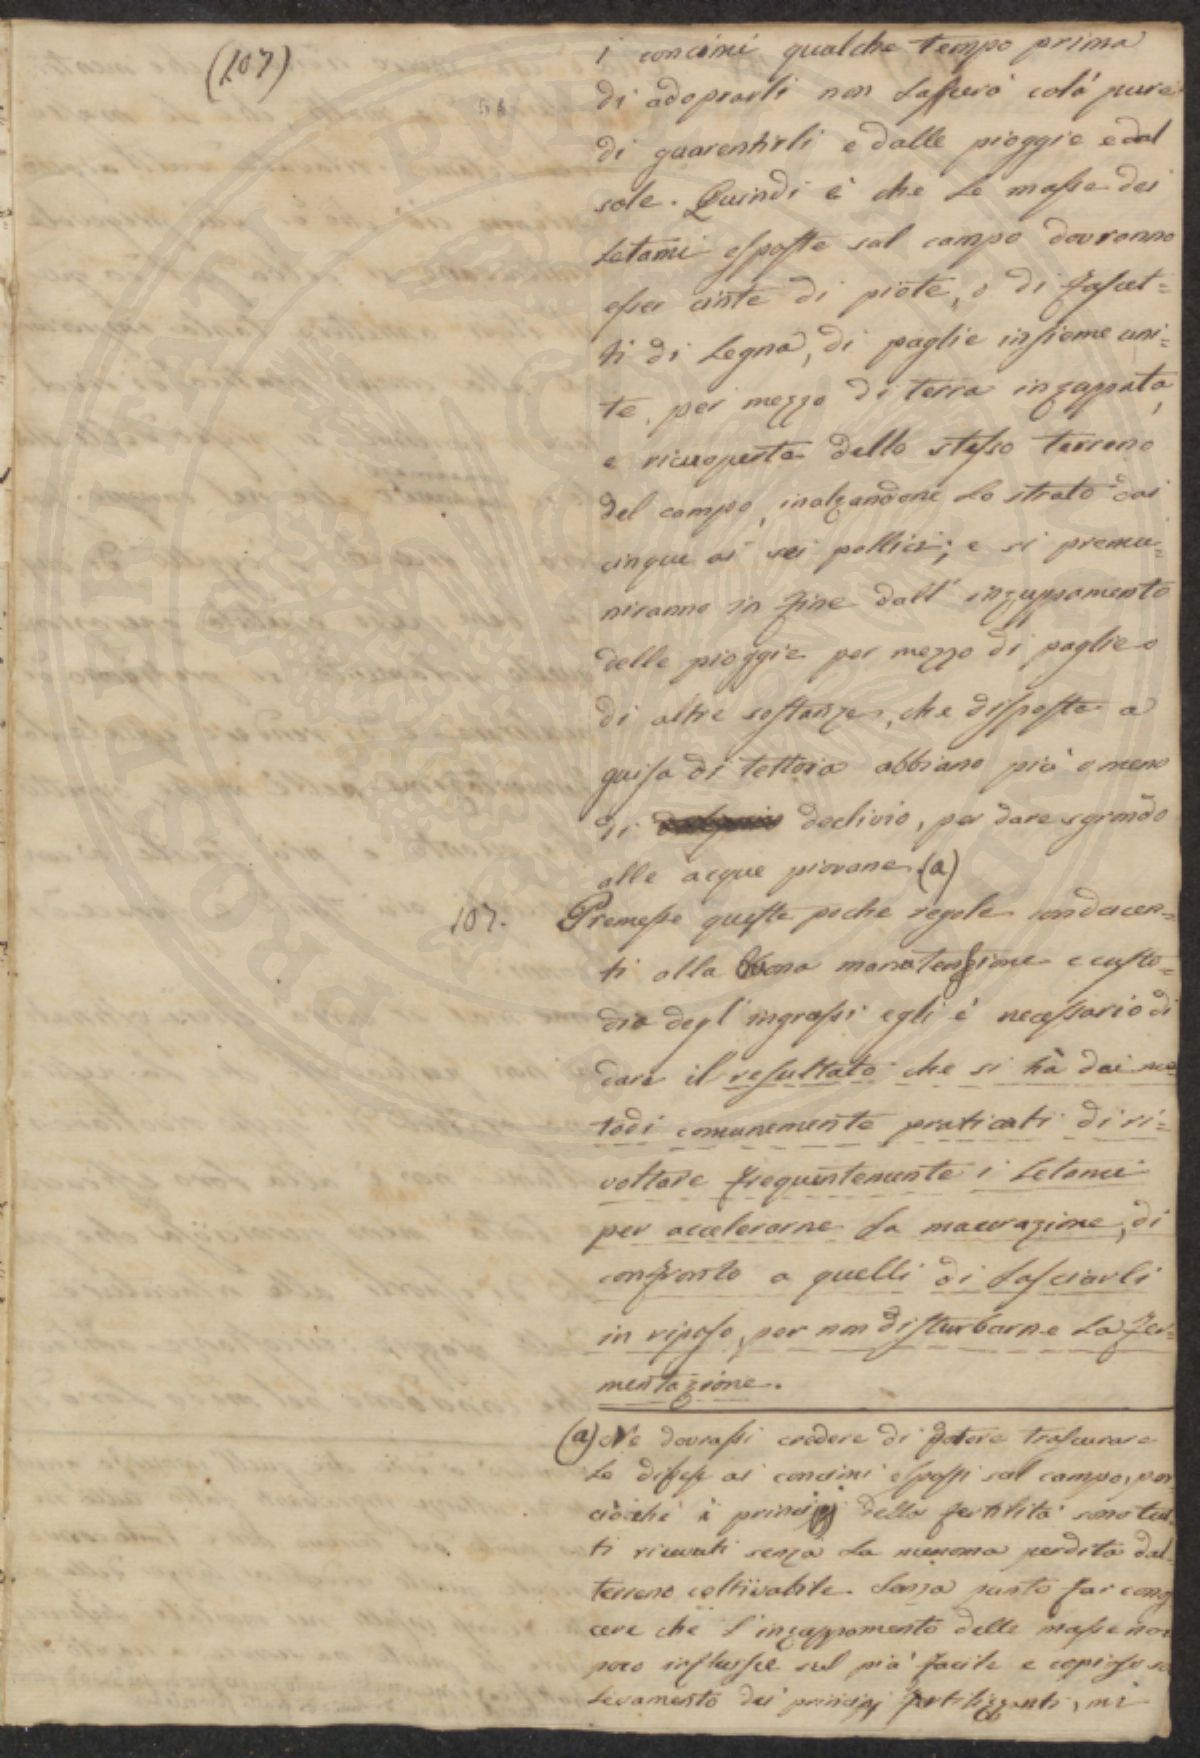 (107)
i concimi qualche tempo prima
di adoprarli non lascerà colà pure
di guarentirli e dalle pioggie e dal
sole. Quindi è che le masse dei
letami esposte sul campo dovranno
esser cinte di piote, o di fascet=
ti di legna, di paglie insieme uni=
te, per mezzo di terra inzuppata,
e ricuoperte dello stesso terreno
del campo, inalzandone lo strato dai
cinque ai sei pollici; e si premu=
niranno in fine dall' inzuppamento
delle pioggie per mezzo di paglie o
di altre sostanze, che disposte a
guisa di tettoia abbiano più o meno
di declivio, per dare sgrondo
alle acque piovane (a)
107. Premesse queste poche regole conducen=
ti alla buona manutenzione e custo=
dia degl' ingrassi egli è necessario di
dare il resultato che si hà dai me
todi comunemente praticati di ri=
voltare frequentemente i letami
per accelerarne la macerazione, di
confronto a quelli di lasciarli
in riposo, per non disturbarne la fer=
mentazione.
(a) Ne dovrassi credere di potere trascurare
le difese ai concimi esposti sul campo, per
ciocchè i principj della fertilità sono tut
ti ricevuti senza la menoma perdita dal
terreno coltivabile. Senza punto far cono
cere che l'inzuppamento delle masse non
poco influisce sul più facile e copioso so
levamento dei principj fertilizzanti, mi